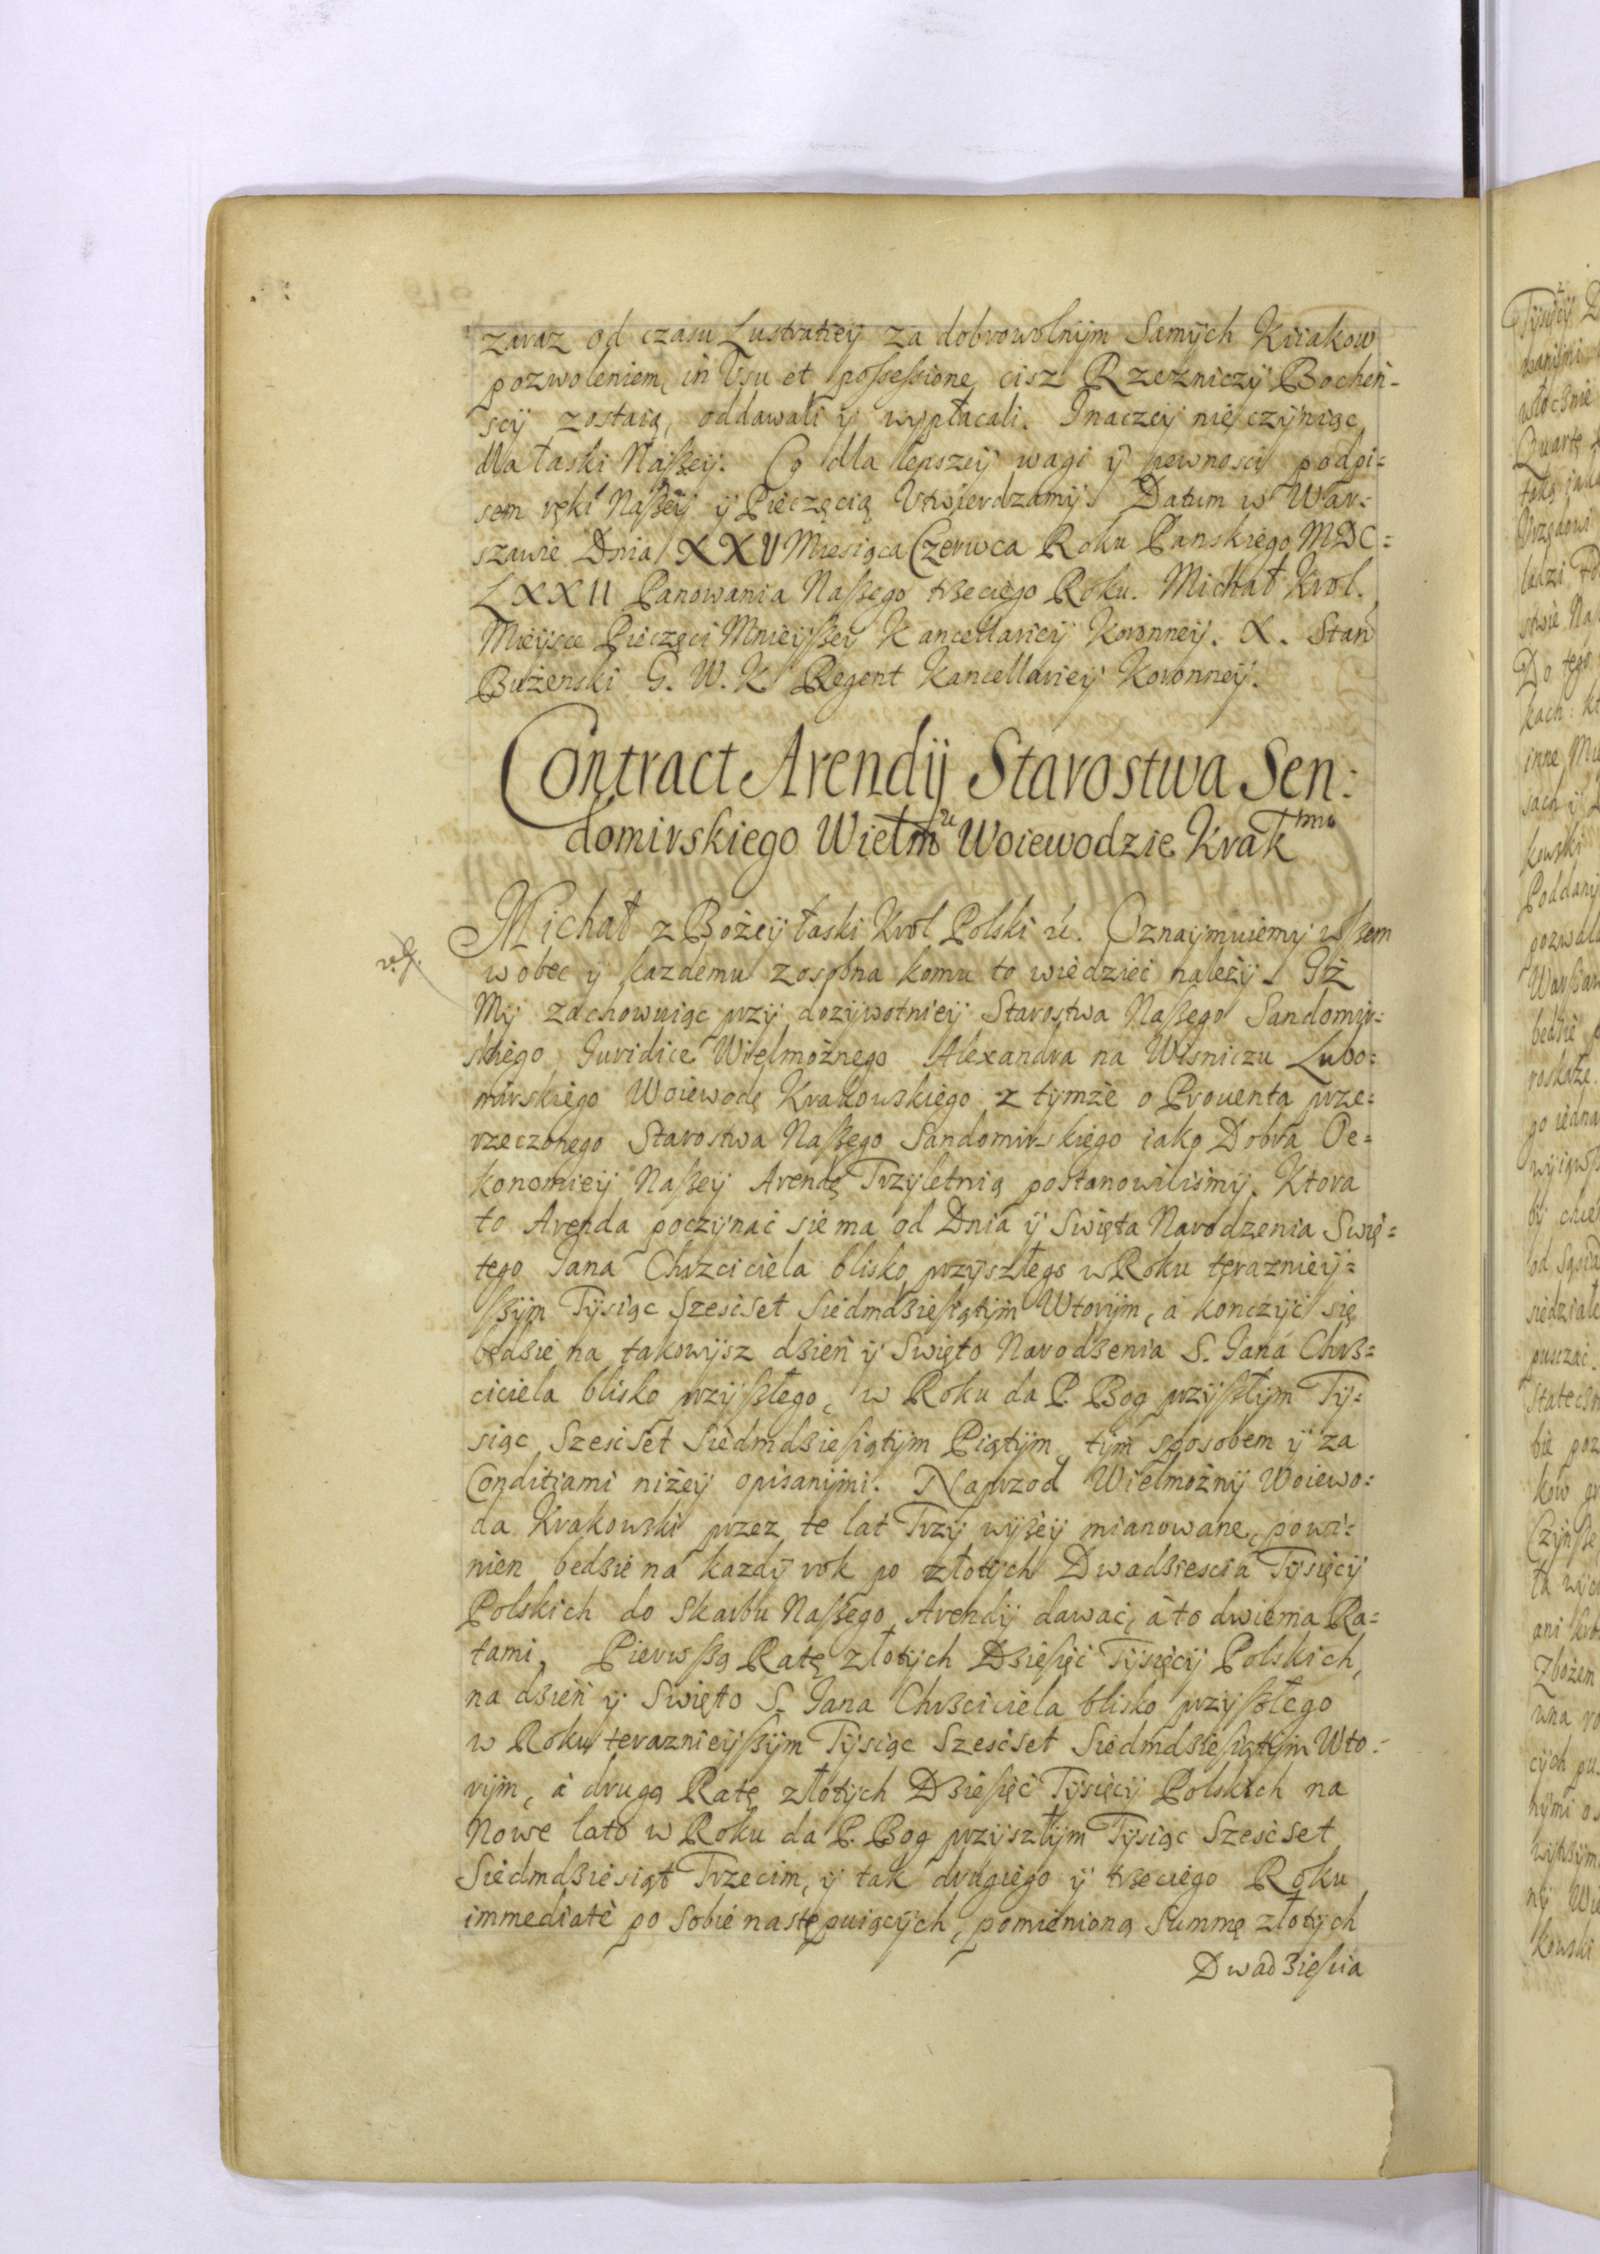 zaraz od czasu Lustratiey za dobrowolnym Samych Kuiakow
pozwoleniem, in Usu et possessione cisz Rzezniczy Bochen-
scy zostaią, oddawali y wypłacali. Inaczey nie czyniąc
dla łaski Naßey. Co dla lepszey wagi y pewnosci podpi=
sem ręki Naßey y Pieczęcią Utwierdzamy. Datum w War=
szawie Dnia XXV Miesiąca Czerwca Roku Panskiego MDC=
LXXII Panowania Naßego trzeciego Roku. Michał Krol.
Mieysce Pieczęci Mnieyßey Kancellariey Koronney. X. Stan
Bużenski G. W. K. Regent Kancellariey Koronney.
Contract Arendy Starostwa Sen:
domirskiego Wielm<sup>u</sup> Woiewodzie Krak<sup>mu</sup>
Michał z Bożey łaski Krol Polski &c. Oznaymuiemy wßem
wobec y kazdemu zosobna komu to wiedzieć należy. Iż
My zachowuiąc przy dozywotniey Starostwa Naßego Sandomir=
skiego Iuridice Wielmożnego Alexandra na Wisniczu Lubo=
mirskiego Woiewodę Krakowskiego z tymże o Prouenta prze=
rzeczonego Starostwa Naßego Sandomirskiego iako Dobra Oe=
konomiey Naßey Arendę Trzyletnią postanowiliśmy. Ktora
to Arenda poczynać sie ma od Dnia y Swięta Narodzenia Swię=
tego Jana Chrzciciela blisko przyszłego w Roku terazniey=
ßym Tysiąc Szescset Siedmdźiesiątym Wtorym, a konczyć się
będzie na takowysz dźień y Swięto Narodzenia S. Jana Chrz=
ciciela blisko przyßłego, w Roku da P. Bog przyßłym Ty=
siąc Szescset Siedmdźiesiątym Piątym, tym sposobem y za
Conditiami niżey opisanymi. Naprzod Wielmożny Woiewo=
da Krakowski przez te lat Trzy wyżey mianowane, powi=
nien będźie na kazdy rok po złotych Dwadźiescia Tysięcy
Polskich do Skarbu Naßego Arendy dawać, a to dwiema Ra=
tami. Pierwßą Ratę złotych Dźiesięć Tysięcy Polskich,
na dźień y Swięto S. Jana Chrzciciela blisko przyßłego
w Roku teraznieyßym Tysiąc Szescset Siedmdźiesiątym Wto=
rym, a drugą Ratę złotych Dźiesięć Tysięcy Polskich na
Nowe lato w Roku da P. Bog przyszłym Tysiąc Szescset
Siedmdźiesiąt Trzecim, y tak drugiego y trzeciego Roku
immediatè po sobie następuiących, pomienioną Summę złotych
Dwadźiescia